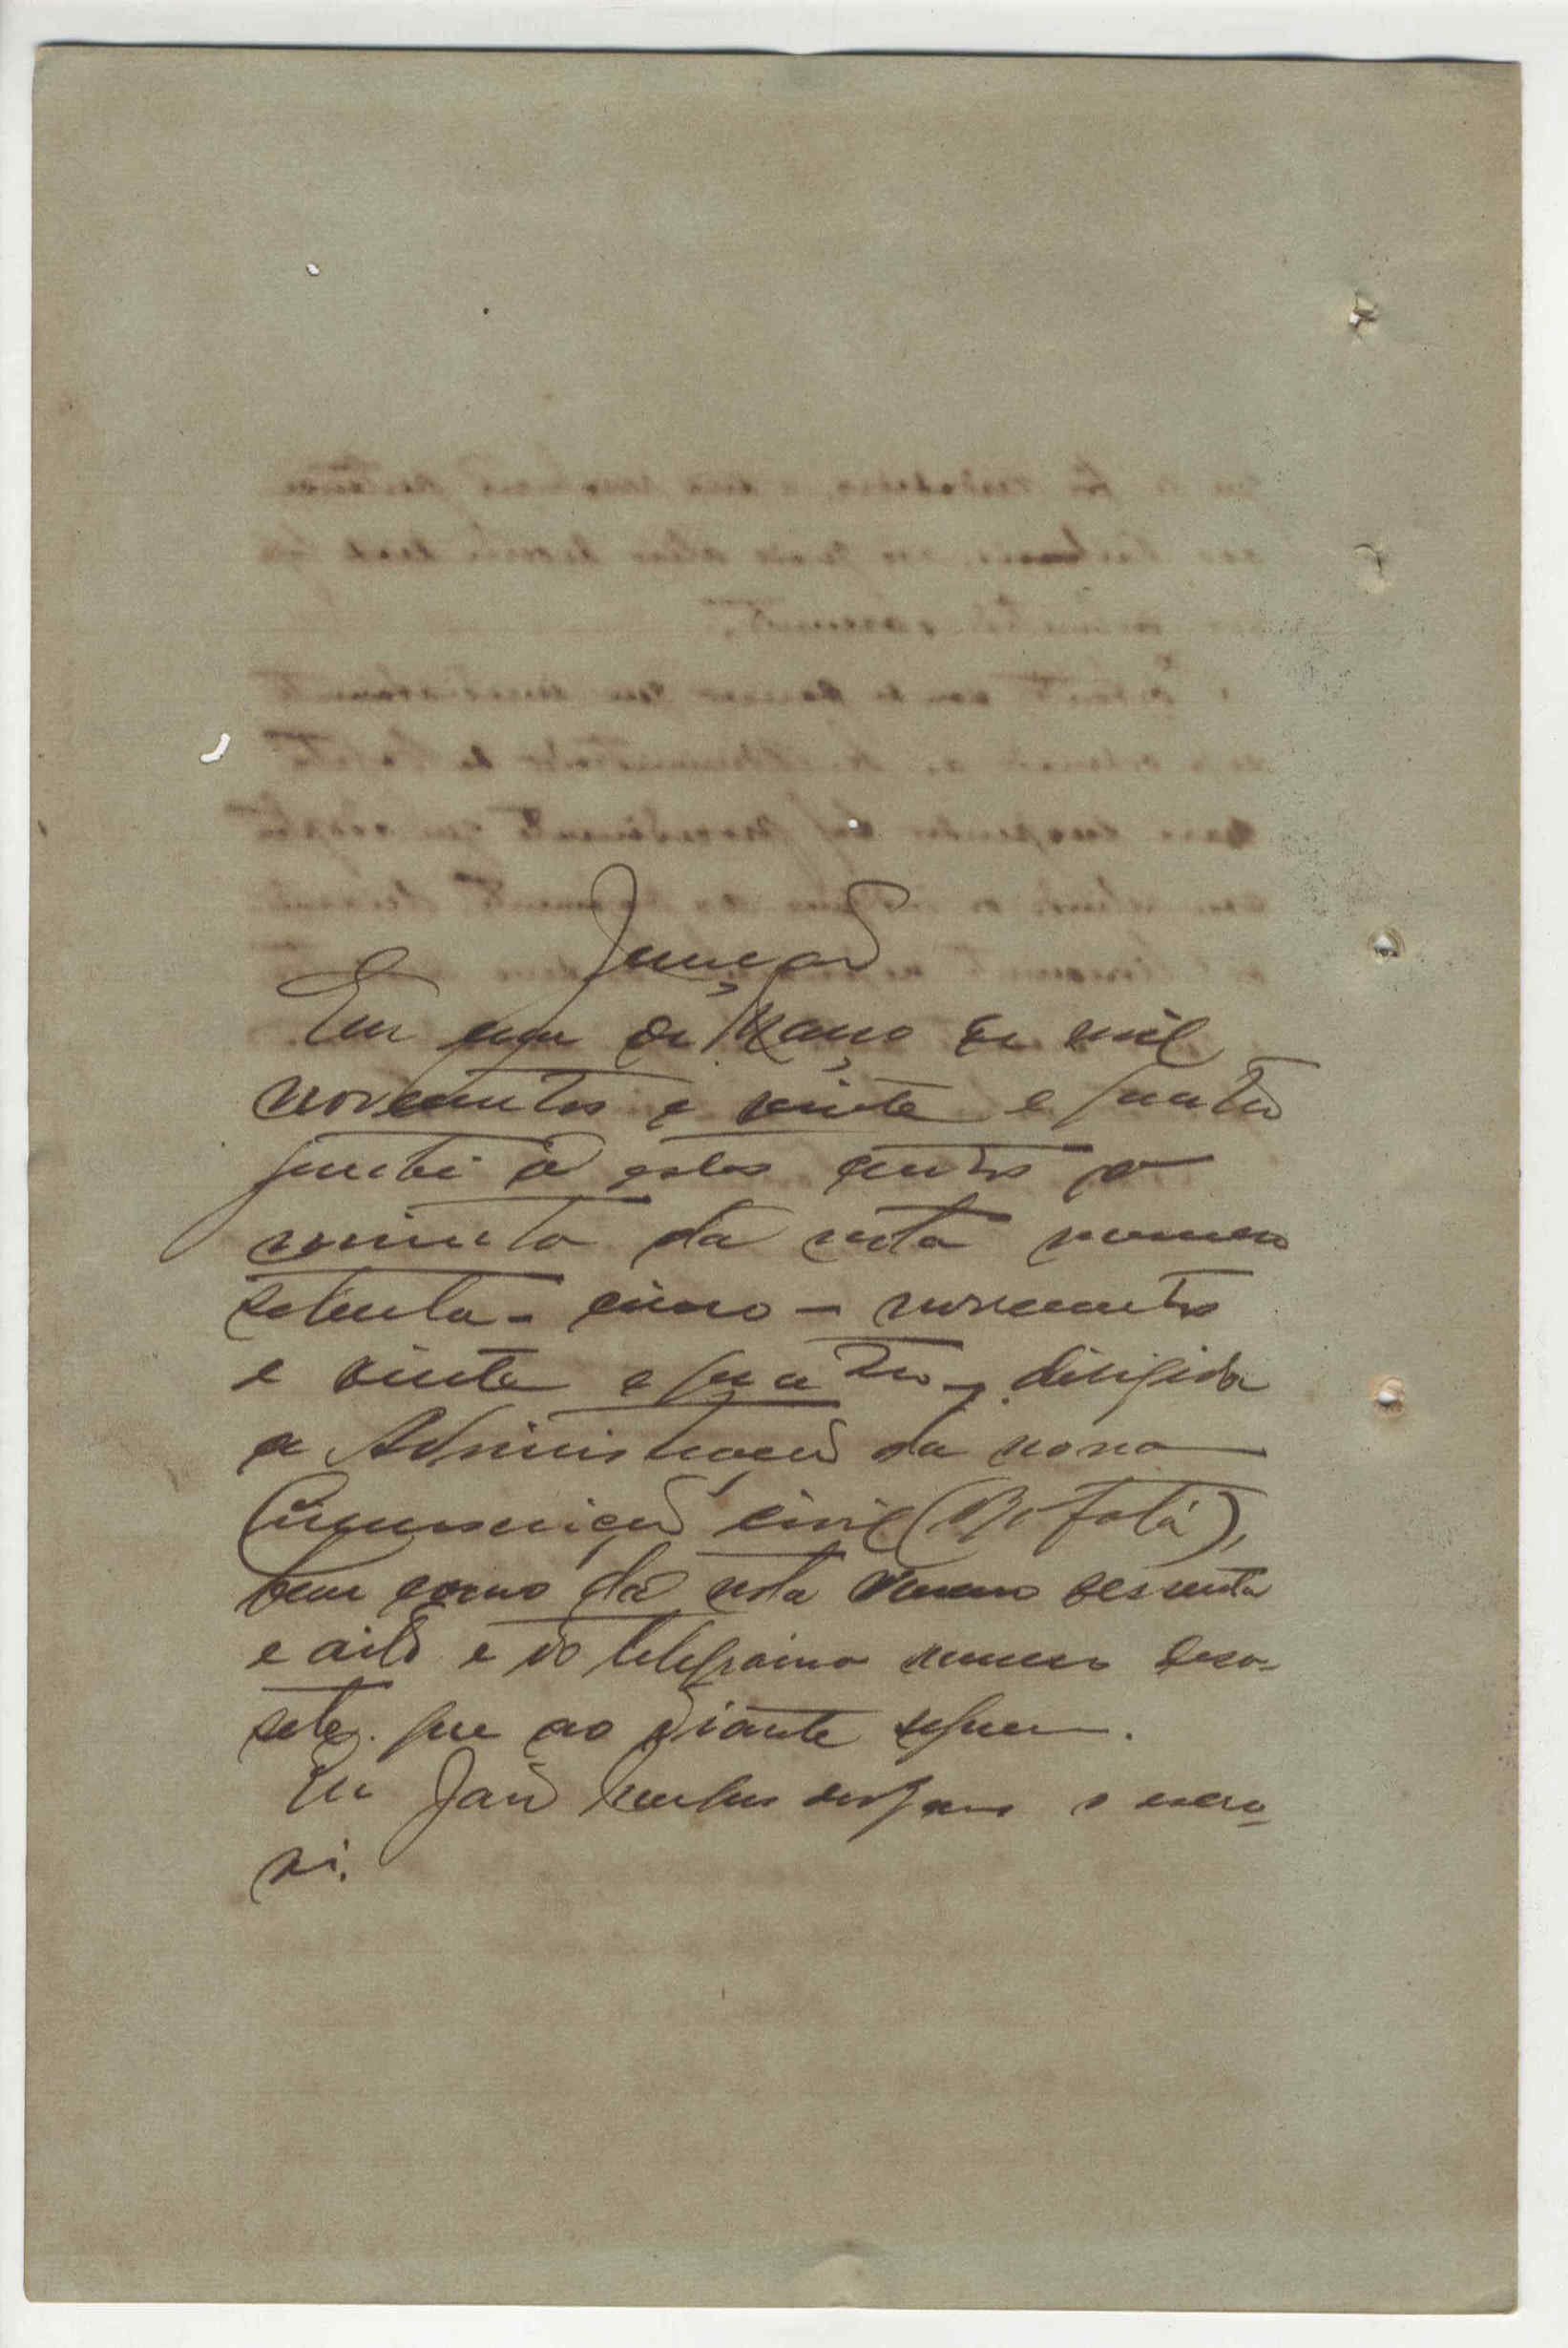 Junção
Em um de Março de mil
novecentos e vinte e quatro
juntei a estes autos a
minuta da nota numero
setenta - cinco - novecentos
e vinte e quatro -, dirigida
a Administração da nona
Circunscrição civil (Bafatá),
bem como da nota numero sessenta
e oito e do telegrama numero deza-
sete. que ao diante seguem.
Eu João o escre-
vi.